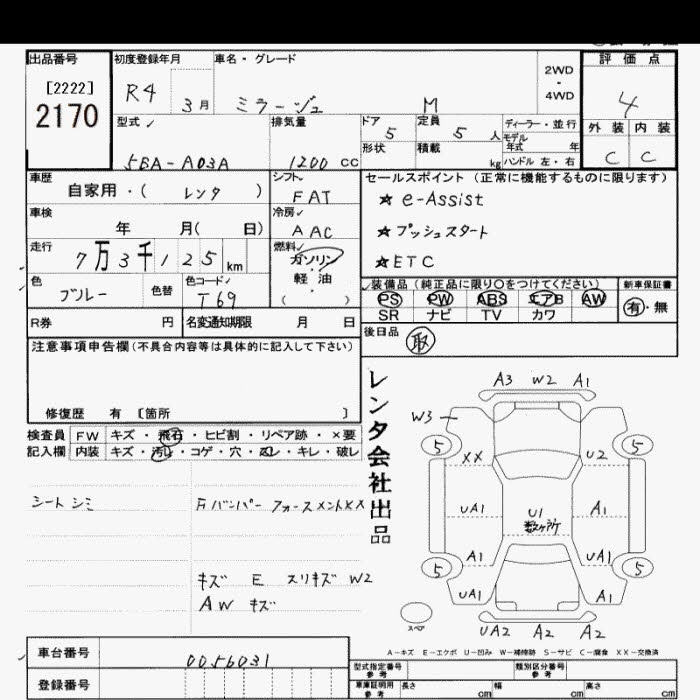 出品番号
[2222]
2170
初度登録年月
R4 3月
車名・グレード
ミラージュ M
2WD
・
4WD
評価点
4
外装 内装
C C
型式
5BA-A03A
排気量
1200 cc
ドア
5
定員
5 人
形状
積載
kg
ディーラー・並行
モデル
年式 年
ハンドル 左・右
車歴
自家用・( レンタ )
シフト
FAT
車検
年 月( 日)
冷房
AAC
走行
7万3千125km
燃料
ガソリン
軽油
( )
色
ブルー
色替
色コード
T69
R券 円
名変通知期限 月 日
セールスポイント (正常に機能するものに限ります)
★ e-Assist
★ プッシュスタート
★ ETC
装備品 (純正品に限り○をつけてください)
PS PW ABS エアB AW
SR ナビ TV カワ
新車保証書
有・無
後日品
取
注意事項申告欄(不具合内容等は具体的に記入して下さい)
修復歴 有 〔箇所 〕
検査員
記入欄
FW キズ・飛石・ヒビ割・リペア跡・×要
内装 キズ・汚れ・コゲ・穴・凹レ・キレ・破レ
シート シミ
Fバンパーフォースメント××
キズ E スリキズ W2
AW キズ
レンタ会社出品
A3 W2 A1
W3
5 5
XX U2
UA1 U1 A1
数ヶ所
A1 UA1
5 5
UA1 A1
スペア
UA2 A2 A2
A-キズ E-エクボ U-凹み W-補修跡 S-サビ C-腐食 XX-交換済
車台番号
0056031
登録番号
型式指定番号
参考
類別区分番号
参考
車庫証明用
参考
長さ cm 幅 cm 高さ cm